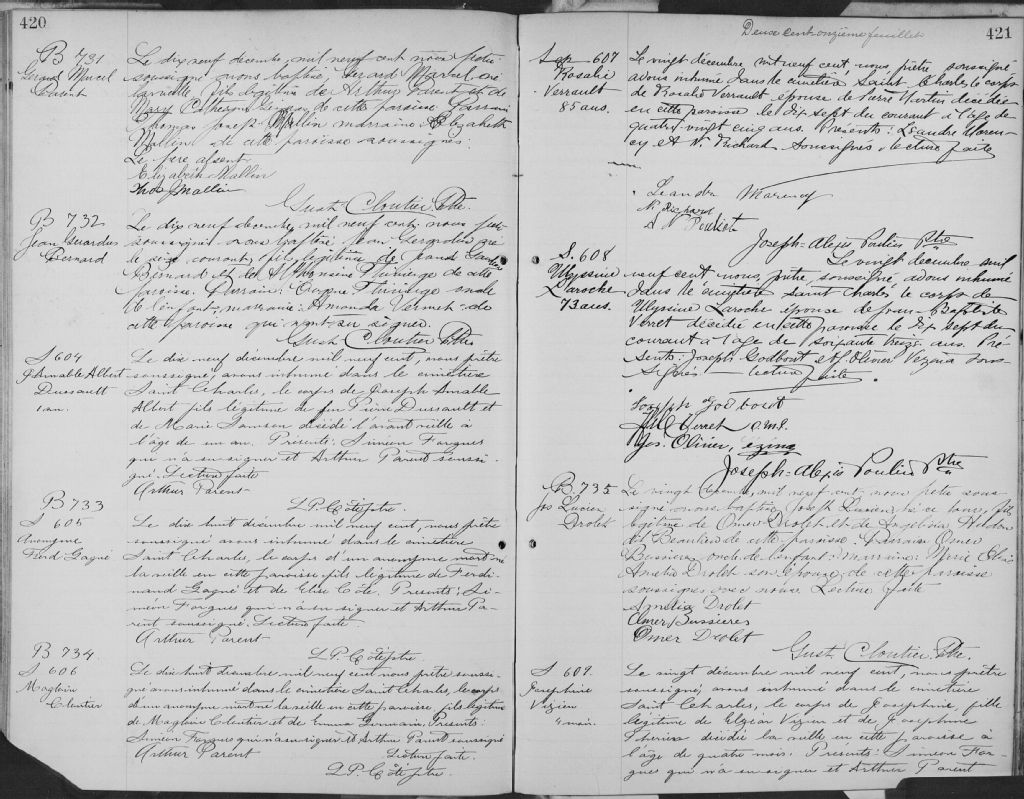 420
B 731
Gerard Marcel
Parent
Le dix neuf décembre, mil neuf cent nous prêtre
soussigné avons baptisé, Gerard Marcel né
la veille, fils légitime de Arthur Parent et de
Mary Catherine de cette paroisse Parrain
Thomas Joseph Mallin marraine Elizabeth
Mallin de cette paroisse soussignés.
Le père absent
Elizabeth Mallin
Thos J Mallin
Gust Cloutier Ptre.
B 732
Jean Gerardus
Bernard
Le dix neuf décembre, mil neuf cent, nous prêtre
soussigné avons baptisé Jean né
le seize courant, fils légitime de
Bernard et de de cette
paroisse. Parrain oncle
de l'enfant, marraine: Amanda Vermet de
cette paroisse qui n'ont su signer.
Gust Cloutier Ptre
S 604
J. Annable Albert
Dussault
1 an.
Le dix neuf décembre mil neuf cent, nous prêtre
soussigné, avons inhumé dans le cimetière
Saint Charles, le corps de Joseph Annable
Albert fils légitime de feu Pierre Dussault et
de Marie Samson décédé l'avant veille à
l'âge de un an. Présents: Siméon Fargues
qui n'a su signer et Arthur Parent soussi-
gné. Lecture faite
Arthur Parent
L.P. Côté ptre.
B 733
S 605
Anonyme
Ferd Gagné
Le dix huit décembre mil neuf cent, nous prêtre
soussigné avons inhumé dans le cimetière
Saint Charles, le corps d'un anonyme mort né
la veille en cette paroisse fils légitime de Ferdi-
nand Gagné et de Elise Côté. Présents: Si-
méon Fargues qui n'a su signer et Arthur Pa-
rent soussigné. Lecture faite.
Arthur Parent
L.P. Côté ptre
B 734
S 606
Magloire
Cloutier
Le dix huit décembre mil neuf cent nous prêtre soussi-
gné avons inhumé dans le cimetière Saint Charles, le corps
d'un anonyme mort né la veille en cette paroisse, fils légitime
de Magloire Cloutier et de Emma Germain. Présents:
Siméon Fargues qui n'a su signer et Arthur Parent soussigné
Arthur Parent Lecture faite.
L.P. Côté ptre.
Deux cent onzième feuillet
421
Sep 607
Rosalie
Verrault
85 ans.
Le vingt décembre mil neuf cent nous, prêtre, soussigné
avons inhumé dans le cimetière Saint Charles le corps
de Rosalie Verrault épouse de Pierre Fortin décédée
en cette paroisse le dix sept du courant à l'âge de
quatre-vingt cinq ans. Présents: Léandre Maren-
cy et N. Richard soussignés. lecture faite
Leandre Marency
N. Richard
Joseph-Alexis Poulin Ptre
S. 608
Ulyssine
Laroche
73 ans.
Le vingt décembre mil
neuf cent nous, prêtre, soussigné, avons inhumé
dans le cimetière Saint Charles le corps de
Ulyssine Laroche épouse de Jean-Baptiste
Verret décédée en cette paroisse le dix sept du
courant à l'âge de soixante treize ans. Pré-
sents: Joseph Godbout et J. Olivier Vézina sous-
signés — lecture faite.
Joseph Godbout
Verret
Jos. Olivier Vézina
Joseph-Alexis Poulin Ptre
B 735
Jos Lucien
Drolet
Le vingt décembre, mil neuf cent, nous prêtre sous-
signé avons baptisé Joseph Lucien né ce jour, fils
légitime de Omer Drolet et de
de cette paroisse. Parrain Omer
Bussières, oncle de l'enfant: marraine:
Amelia Drolet son épouse, de cette paroisse
soussignés avec nous. Lecture faite
Amelia Drolet
Omer Bussières
Omer Drolet
Gust Cloutier Ptre.
S 609.
Josephine
Vézina
4 mois.
Le vingt décembre mil neuf cent, nous prêtre
soussigné, avons inhumé dans le cimetière
Saint Charles, le corps de Josephine, fille
légitime de Elzéar Vézina et de Josephine
décédée la veille en cette paroisse à
l'âge de quatre mois. Présents: Siméon Far-
gues qui n'a su signer et Arthur Parent